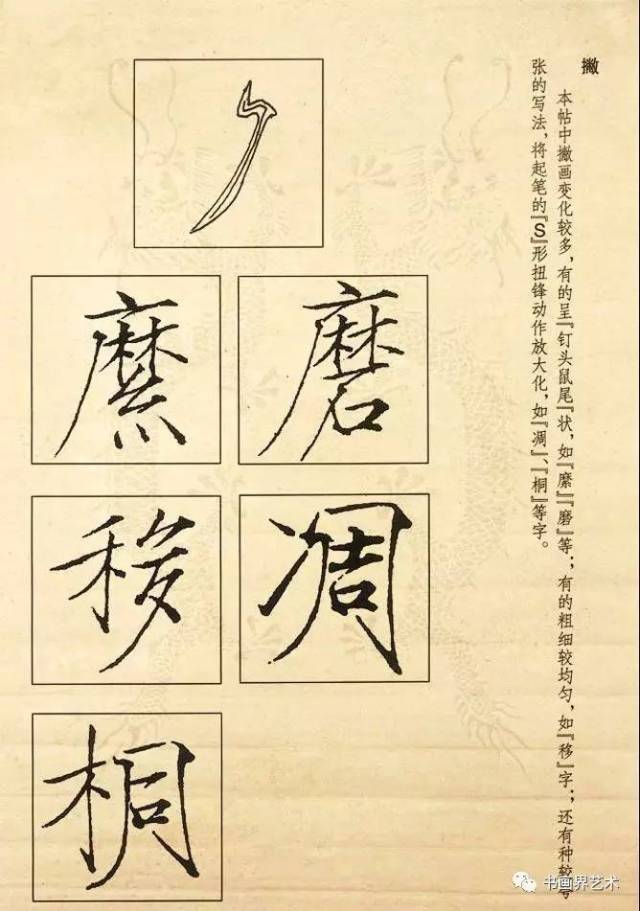 撇
本帖中撇画变化较多，有的呈『钉头鼠尾』状，如『縻』『磨』等；有的粗细较均匀，如『移』字；还有种较夸
张的写法，将起笔的『S』形扭锋动作放大化，如『凋』、『桐』等字。
磨
縻
凋
移
桐
书画界艺术